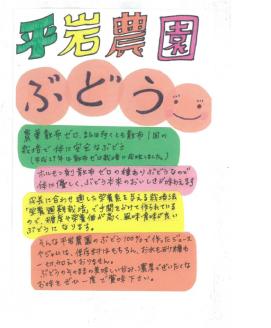 平岩農園
ぶどう
農薬散布ゼロ、または行っても散布1回の
栽培で体に安全なぶどう
(平成29年は散布ゼロ栽培に成功しました。)
ホルモン剤散布ゼロの種ありぶどうなので
体に優しく、ぶどう本来のおいしさが味わえます
成長に合わせ適した栄養素を与える栽培法
「栄養週期栽培」で手間をかけて作られている
ので、糖度や栄養価が高く、風味食味が良い
ぶどうになります。
そんな平岩農園のぶどう100%で作ったジュース
やジャムは、保存料はもちろん、お水も砂糖も
一切加えておりません。
ぶどうのそのままの美味しい甘み、濃厚でぜいたくな
お味をぜひ一度ご賞味下さい。